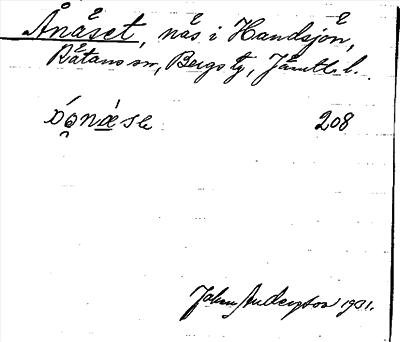 Ånäset, näs i Handsjön,
Rätans sn, Bergs tg, Jämtl. l.
208
Johan Anderson 1931.